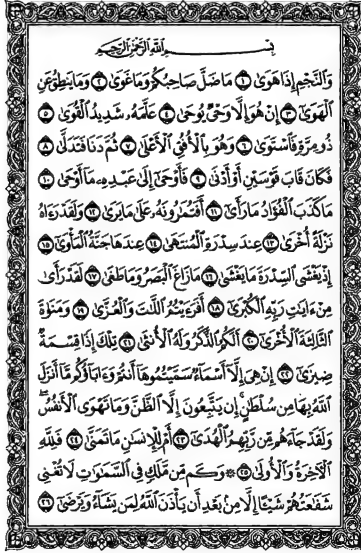 بِسْمِ ٱللَّهِ ٱلرَّحْمَٰنِ ٱلرَّحِيمِ
وَٱلنَّجْمِ إِذَا هَوَىٰ ١ مَا ضَلَّ صَاحِبُكُمْ وَمَا غَوَىٰ ٢ وَمَا يَنطِقُ عَنِ
ٱلْهَوَىٰٓ ٣ إِنْ هُوَ إِلَّا وَحْىٌ يُوحَىٰ ٤ عَلَّمَهُۥ شَدِيدُ ٱلْقُوَىٰ ٥
ذُو مِرَّةٍ فَٱسْتَوَىٰ ٦ وَهُوَ بِٱلْأُفُقِ ٱلْأَعْلَىٰ ٧ ثُمَّ دَنَا فَتَدَلَّىٰ ٨
فَكَانَ قَابَ قَوْسَيْنِ أَوْ أَدْنَىٰ ٩ فَأَوْحَىٰٓ إِلَىٰ عَبْدِهِۦ مَآ أَوْحَىٰ ١٠
مَا كَذَبَ ٱلْفُؤَادُ مَا رَأَىٰٓ ١١ أَفَتُمَٰرُونَهُۥ عَلَىٰ مَا يَرَىٰ ١٢ وَلَقَدْ رَءَاهُ
نَزْلَةً أُخْرَىٰ ١٣ عِندَ سِدْرَةِ ٱلْمُنتَهَىٰ ١٤ عِندَهَا جَنَّةُ ٱلْمَأْوَىٰٓ ١٥
إِذْ يَغْشَى ٱلسِّدْرَةَ مَا يَغْشَىٰ ١٦ مَا زَاغَ ٱلْبَصَرُ وَمَا طَغَىٰ ١٧ لَقَدْ رَأَىٰ
مِنْ ءَايَٰتِ رَبِّهِ ٱلْكُبْرَىٰٓ ١٨ أَفَرَءَيْتُمُ ٱللَّٰتَ وَٱلْعُزَّىٰ ١٩ وَمَنَوٰةَ
ٱلثَّالِثَةَ ٱلْأُخْرَىٰٓ ٢٠ أَلَكُمُ ٱلذَّكَرُ وَلَهُ ٱلْأُنثَىٰ ٢١ تِلْكَ إِذًا قِسْمَةٌ
ضِيزَىٰٓ ٢٢ إِنْ هِىَ إِلَّآ أَسْمَآءٌ سَمَّيْتُمُوهَآ أَنتُمْ وَءَابَآؤُكُم مَّآ أَنزَلَ
ٱللَّهُ بِهَا مِن سُلْطَٰنٍ ۚ إِن يَتَّبِعُونَ إِلَّا ٱلظَّنَّ وَمَا تَهْوَى ٱلْأَنفُسُ ۖ
وَلَقَدْ جَآءَهُم مِّن رَّبِّهِمُ ٱلْهُدَىٰٓ ٢٣ أَمْ لِلْإِنسَٰنِ مَا تَمَنَّىٰ ٢٤ فَلِلَّهِ
ٱلْءَاخِرَةُ وَٱلْأُولَىٰ ٢٥ ۞ وَكَم مِّن مَّلَكٍ فِى ٱلسَّمَٰوَٰتِ لَا تُغْنِى
شَفَٰعَتُهُمْ شَيْـًٔا إِلَّا مِنۢ بَعْدِ أَن يَأْذَنَ ٱللَّهُ لِمَن يَشَآءُ وَيَرْضَىٰٓ ٢٦